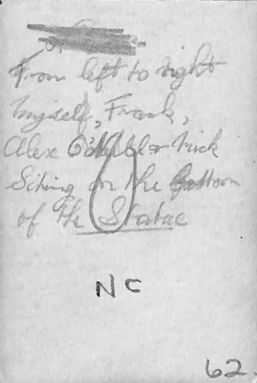 From left to right
myself, Frank,
Alex & Nick
Sitting on the Bottom
of the Statue
NC
62.